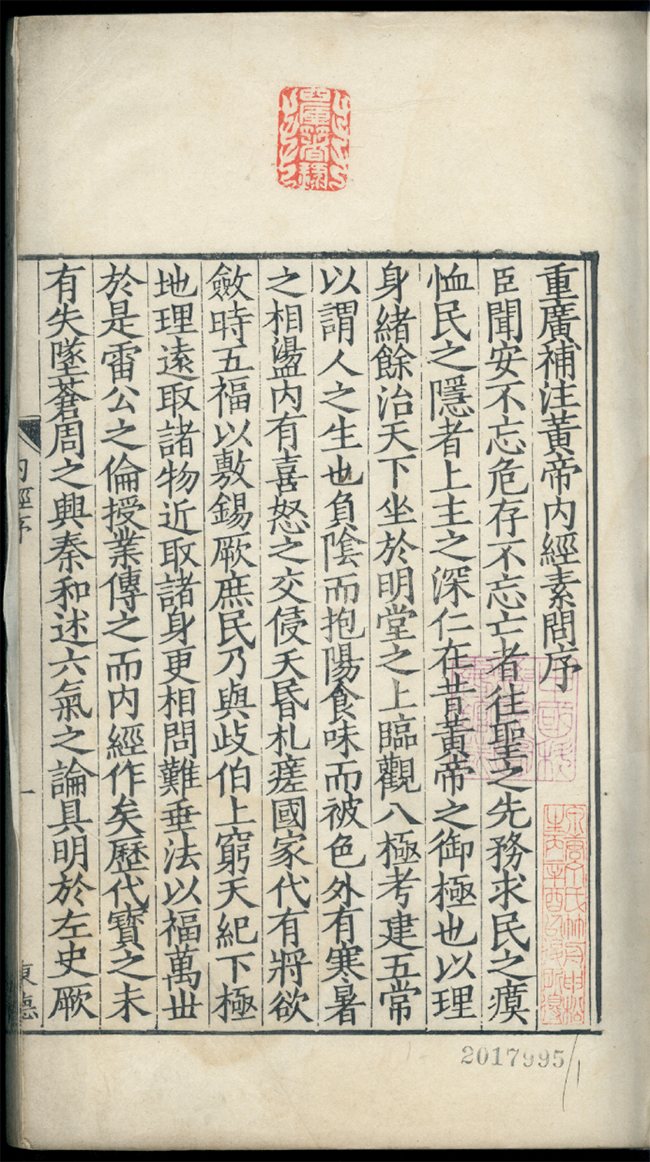 重廣補注黃帝内經素問序
臣聞安不忘危存不忘亡者往聖之先務求民之瘼
恤民之隱者上主之深仁在昔黃帝之御極也以理
身緒餘治天下坐於明堂之上臨觀八極考建五常
以謂人之生也負陰而抱陽食味而被色外有寒暑
之相盪内有喜怒之交侵夭昏札瘥國家代有將欲
斂時五福以敷錫厥庶民乃與歧伯上窮天紀下極
地理遠取諸物近取諸身更相問難垂法以福萬世
於是雷公之倫授業傳之而内經作矣歷代寶之未
有失墜蒼周之興秦和述六氣之論具明於左史厥
内經序
一
2017995/1